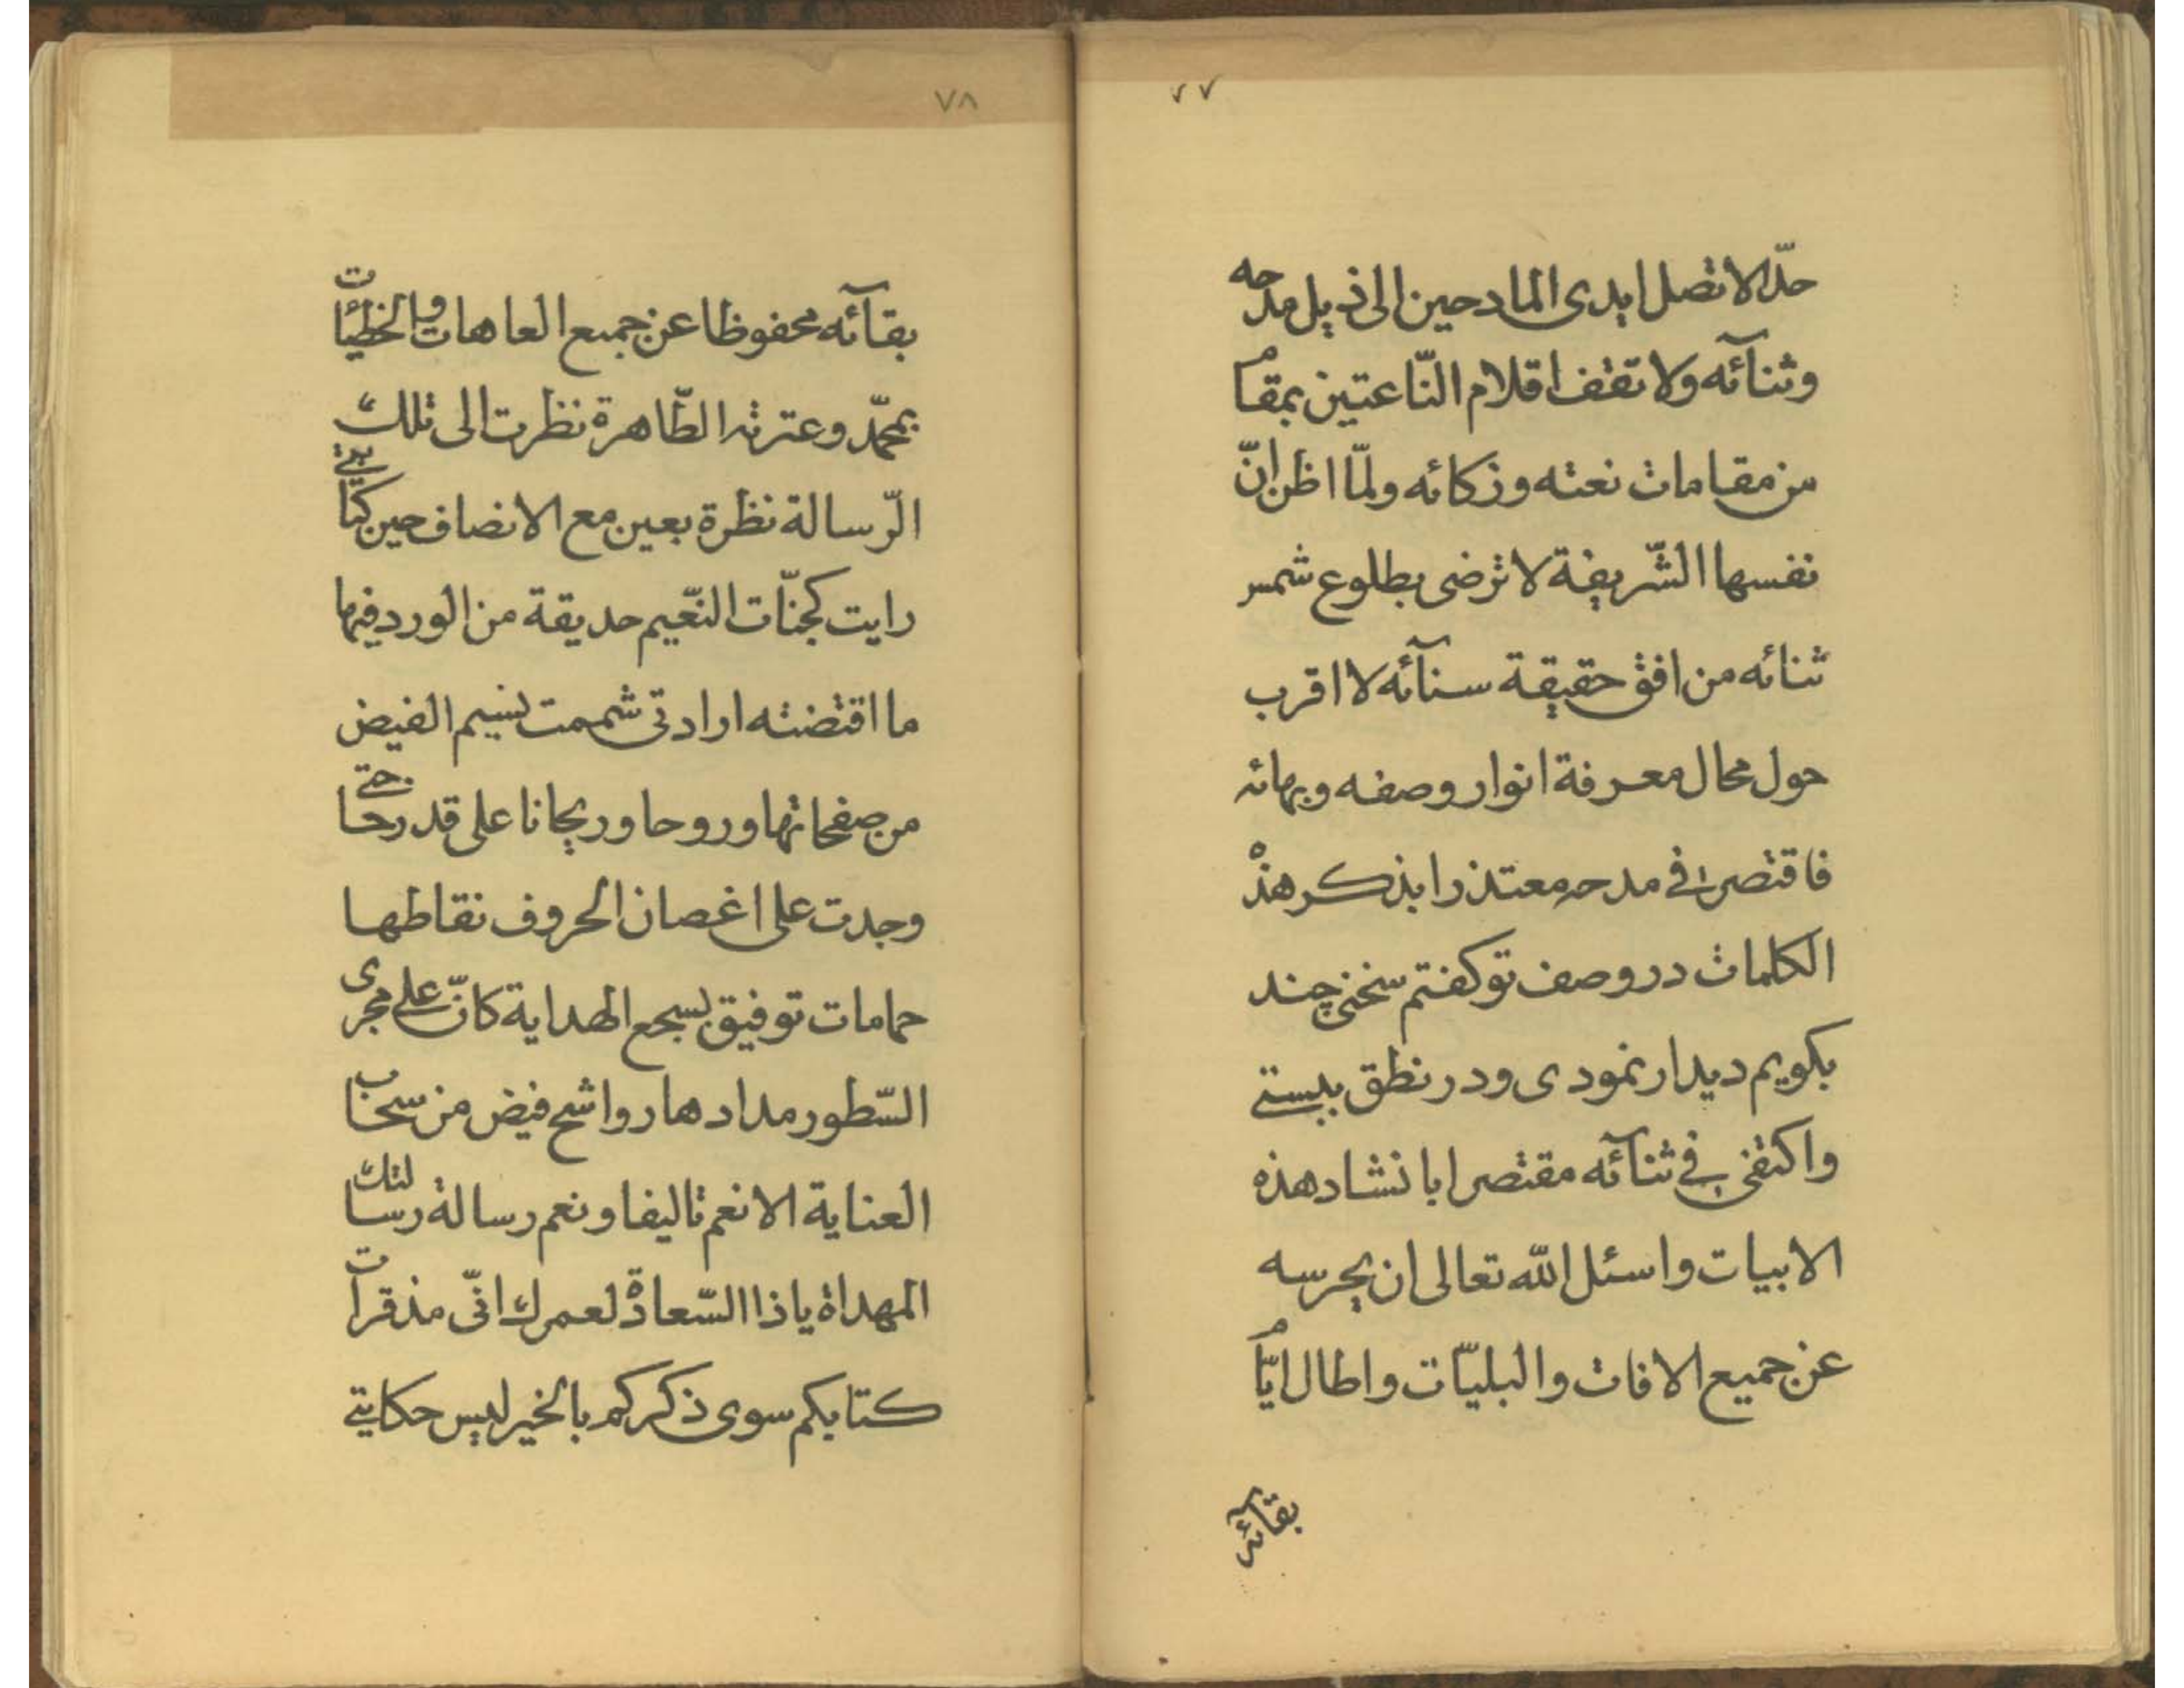 ٧٧
حدّا لا تصل ایدی المادحین الی ذیل مدحه
وثنآئه ولا تقف اقلام النّاعتین بمقام
من مقامات نعته وزکائه ولمّا اظن انّ
نفسها الشّریفة لا ترضی بطلوع شمس
ثنائه من افق حقیقة سنآئه لا اقرب
حول محال معرفة انوار وصفه وبهائه
فاقتصر فی مدحه معتذرا بذکر هذه
الکلمات در وصف توکفتم سخنی چند
بکویم دیدار نمودی ودر نطق ببستی
واکتفی فی ثنآئه مقتصرا بانشاد هذه
الابیات واسئل اللّه تعالی ان یحرسه
عن جمیع الافات والبلیّات واطال ایّام
بقآئه
٧٨
بقآئه محفوظا عن جمیع العاهات والخطیّئات
بمحمّد وعترته الطّاهرة نظرت الی تلک
الرّسالة نظرة بعین مع الانصاف حین کتابتی
رایت کجنّات النّعیم حدیقة من الورد فیها
ما اقتضته ارادتی شممت نسیم الفیض
من صفحاتها وروحا وریحانا علی قدر حاجتی
وجدت علی اغصان الحروف نقاطها
حمامات توفیق بسجع الهدایة کانّ علی مجری
السّطور مدادها رواشح فیض من سحاب
العنایة الا نعم تالیفا ونعم رسالة رسالتک
المهداة یاذا السّعادة لعمرک انّی مذ قرات
کتابکم سوی ذکرکم بالخیر لیس حکایتی